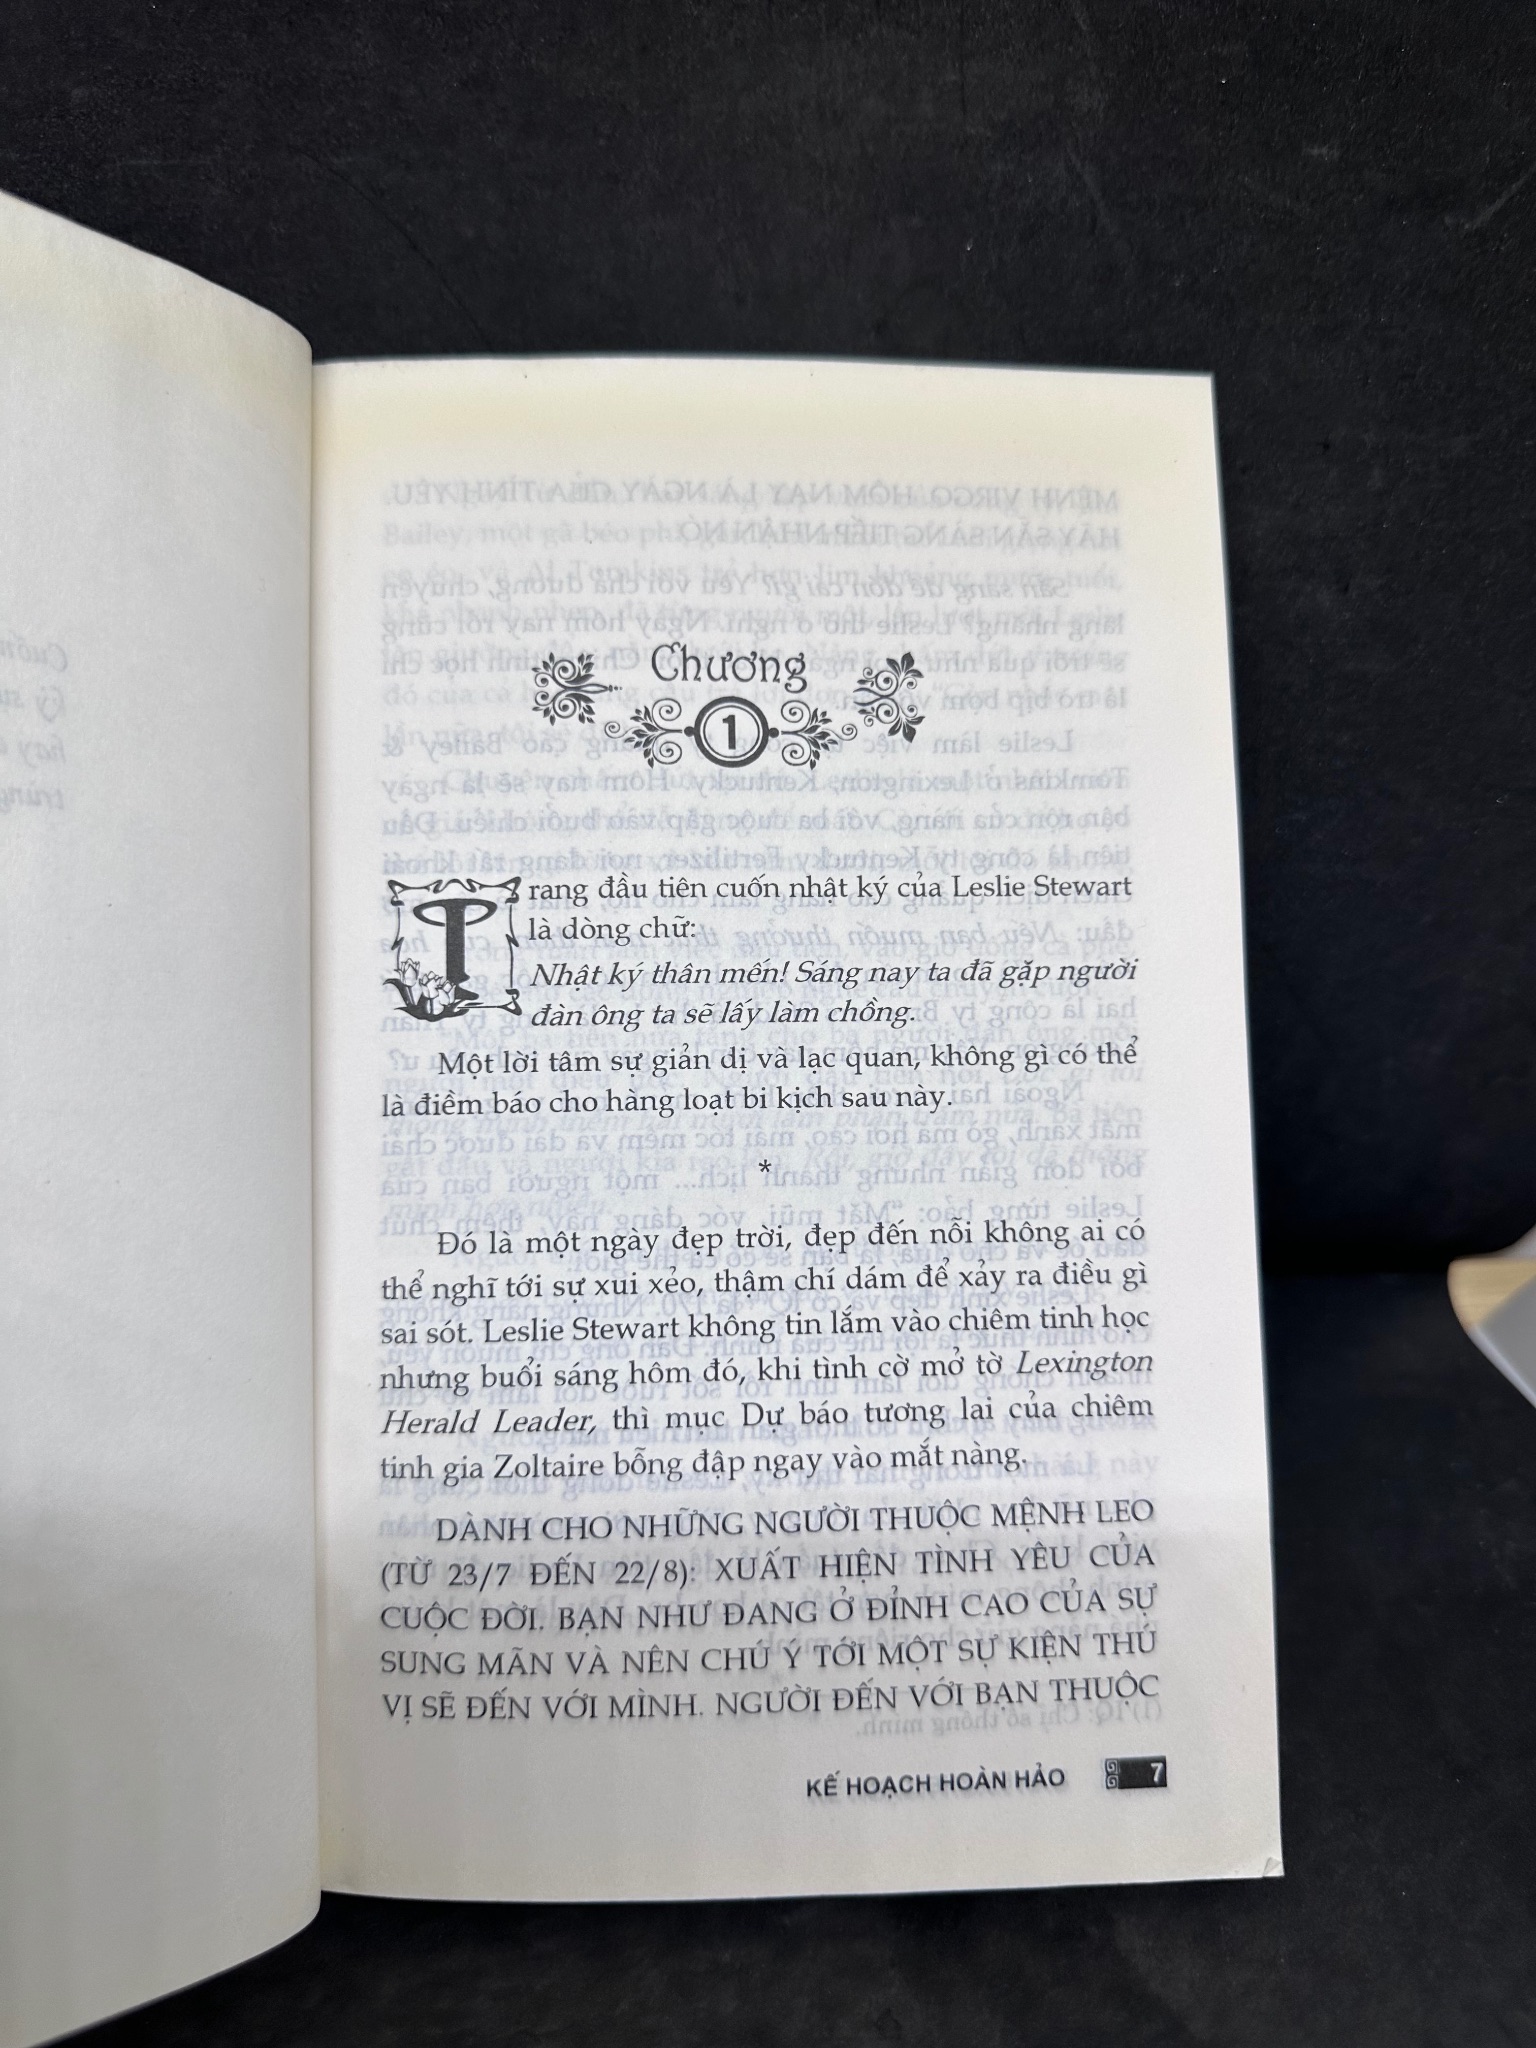 Chương
1
Trang đầu tiên cuốn nhật ký của Leslie Stewart
là dòng chữ:
Nhật ký thân mến! Sáng nay ta đã gặp người
đàn ông ta sẽ lấy làm chồng.
Một lời tâm sự giản dị và lạc quan, không gì có thể
là điềm báo cho hàng loạt bi kịch sau này.
*
Đó là một ngày đẹp trời, đẹp đến nỗi không ai có
thể nghĩ tới sự xui xẻo, thậm chí dám để xảy ra điều gì
sai sót. Leslie Stewart không tin lắm vào chiêm tinh học
nhưng buổi sáng hôm đó, khi tình cờ mở tờ Lexington
Herald Leader, thì mục Dự báo tương lai của chiêm
tinh gia Zoltaire bỗng đập ngay vào mắt nàng.
DÀNH CHO NHỮNG NGƯỜI THUỘC MỆNH LEO
(TỪ 23/7 ĐẾN 22/8): XUẤT HIỆN TÌNH YÊU CỦA
CUỘC ĐỜI. BẠN NHƯ ĐANG Ở ĐỈNH CAO CỦA SỰ
SUNG MÃN VÀ NÊN CHÚ Ý TỚI MỘT SỰ KIỆN THÚ
VỊ SẼ ĐẾN VỚI MÌNH. NGƯỜI ĐẾN VỚI BẠN THUỘC
KẾ HOẠCH HOÀN HẢO 7